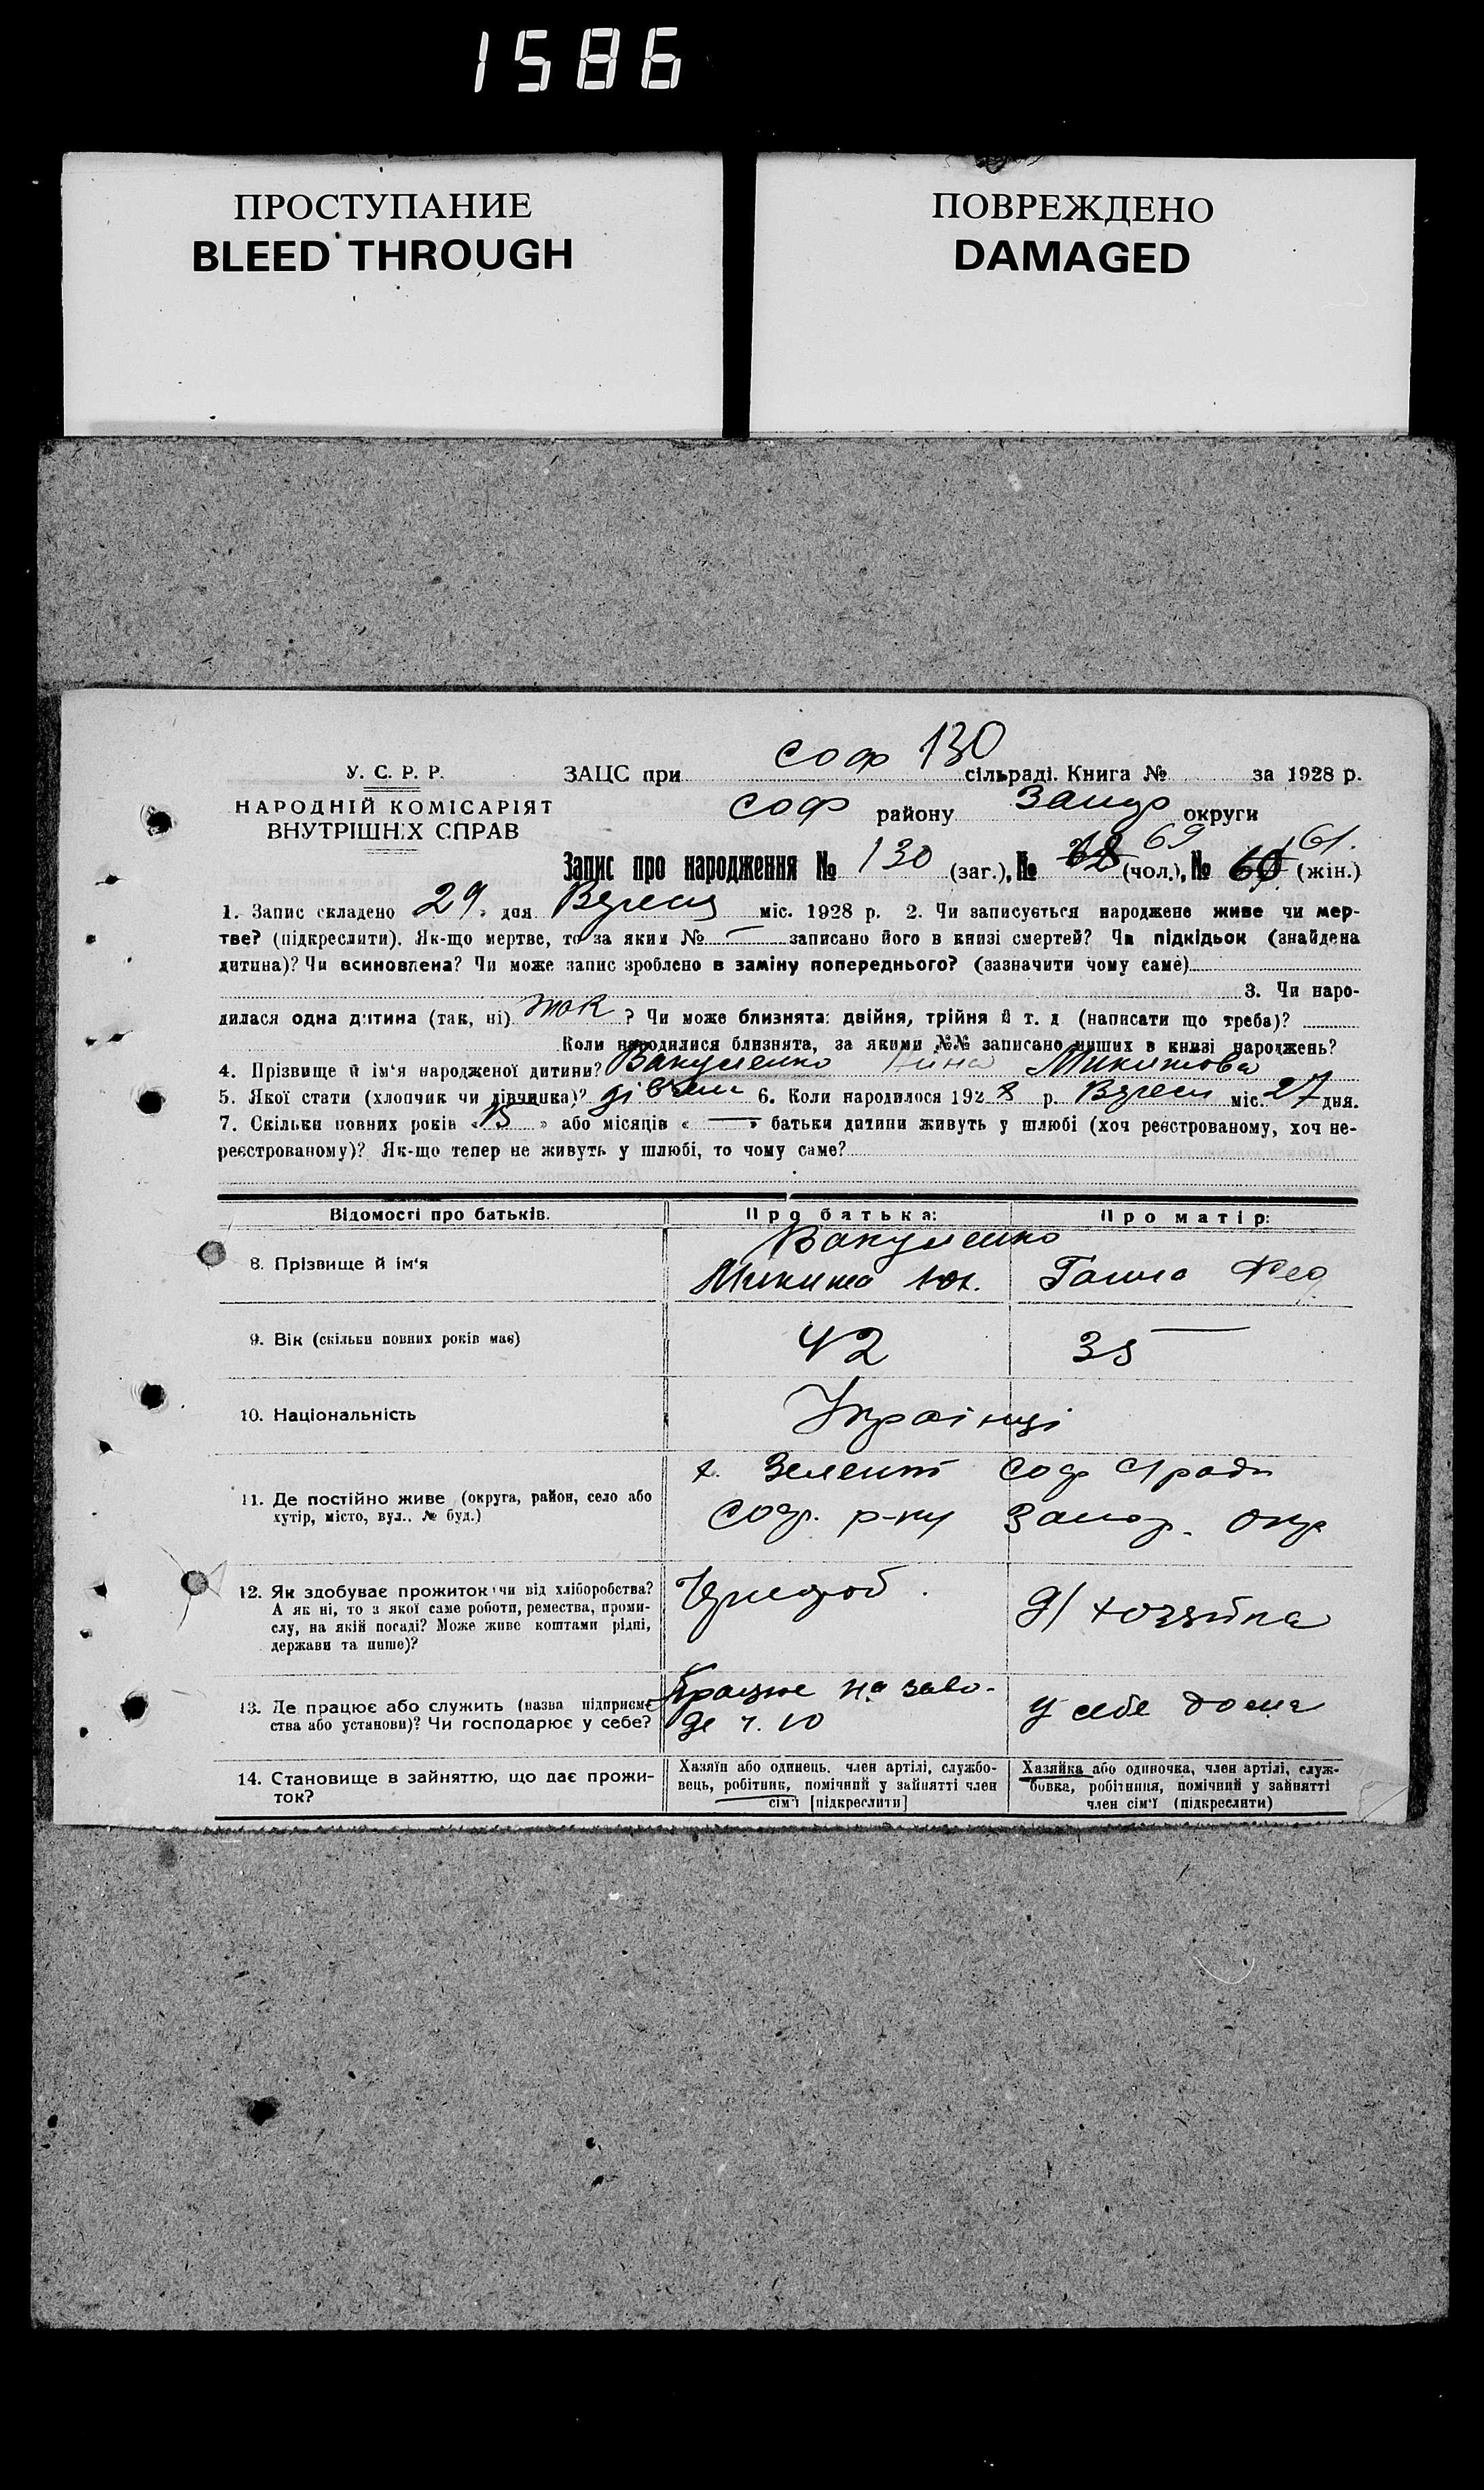 1586
ПРОСТУПАНИЕ
BLEED THROUGH
ПОВРЕЖДЕНО
DAMAGED
У. С. Р. Р.
НАРОДНІЙ КОМІСАРІЯТ
ВНУТРІШНІХ СПРАВ
ЗАЦС при соф 130 сільраді. Книга № за 1928 р.
соф району округи
Запис про народження № 130 (заг.), № 69 (чол.), № 61. (жін.)
1. Запис складено 29. дня Вересня міс. 1928 р. 2. Чи записується народжене живе чи мер-
тве? (підкреслити). Як-що мертве, то за яким № — записано його в книзі смертей? Чи підкідьок (знайдена
дитина)? Чи всиновлена? Чи може запис зроблено в заміну попереднього? (зазначити чому саме)
3. Чи наро-
дилася одна дитина (так, ні) так ? Чи може близнята: двійня, трійня й т. д (написати що треба)?
Коли народилися близнята, за якими №№ записано инших в книзі народжень?
4. Прізвище й ім'я народженої дитини? Вакуленко Ніна Микитова
5. Якої стати (хлопчик чи дівчинка)? дівчин 6. Коли народилося 1928 р. Вересн міс. 27 дня.
7. Скільки повних років « 15 » або місяців « — » батьки дитини живуть у шлюбі (хоч реєстрованому, хоч не-
реєстрованому)? Як-що тепер не живуть у шлюбі, то чому саме?
Відомості про батьків. Про батька: Про матір:
Вакуленко
8. Прізвище й ім'я Микита Галя Фед
9. Вік (скільки повних років має) 42 35
10. Національність Українці
11. Де постійно живе (округа, район, село або
хутір, місто, вул., № буд.)
х. Зелений соф с/ради
Соф. р-ну Запор. окр
12. Як здобуває прожиток чи від хліборобства?
А як ні, то з якої саме роботи, ремества, проми-
слу, на якій посаді? Може живе коштами рідні,
держави та инше)?
Чорнороб. д/хозяйка
13. Де працює або служить (назва підприєм-
ства або установи)? Чи господарює у себе?
Працює на заво-
де ч. 10
У себе дома
14. Становище в зайняттю, що дає прожи-
ток?
Хазяїн або одинець, член артілі, службо-
вець, робітник, помічний у зайнятті член
сім'ї [підкреслити]
Хазяйка або одиночка, член артілі, служ-
бовка, робітниця, помічний у зайнятті
член сім'ї (підкреслити)